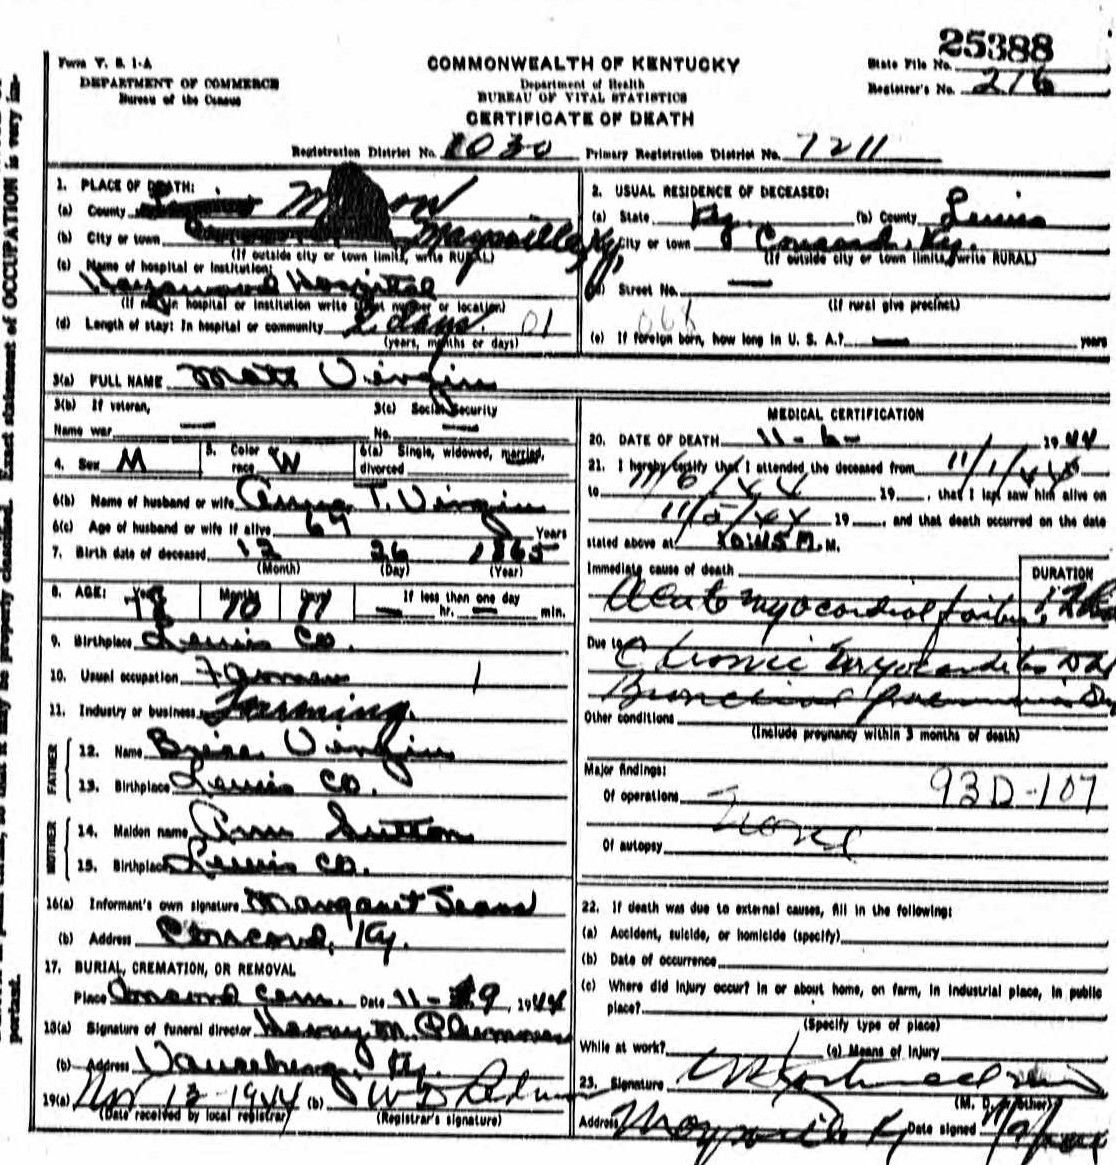 25388
Form V. S. 1-A
DEPARTMENT OF COMMERCE
Bureau of the Census
COMMONWEALTH OF KENTUCKY
Department of Health
BUREAU OF VITAL STATISTICS
CERTIFICATE OF DEATH
State File No.
Registrar's No. 216
Registration District No. 1030 Primary Registration District No. 7211
1. PLACE OF DEATH:
(a) County
(b) City or town Maysville, Ky,
(If outside city or town limits, write RURAL)
(c) Name of hospital or institution:
Hayswood Hospital
(If not in hospital or institution write street number or location)
(d) Length of stay: In hospital or community 2 days. 01
(years, months or days)
2. USUAL RESIDENCE OF DECEASED:
(a) State Ky. (b) County Lewis
City or town Concord, Ky.
(If outside city or town limits, write RURAL)
Street No. —
(If rural give precinct)
068
(e) If foreign born, how long in U. S. A.? — years
3(a) FULL NAME Matt Virgin
3(b) If veteran,
Name war —
3(c) Social Security
No. —
4. Sex M 5. Color or race W 6(a) Single, widowed, married, divorced
6(b) Name of husband or wife T. Virgin
6(c) Age of husband or wife if alive 69 Years
7. Birth date of deceased 12 26 1865
(Month) (Day) (Year)
8. AGE: Years 78 Months 10 Days 11 If less then one day — hr. — min.
9. Birthplace Lewis Co.
10. Usual occupation Farmer 1
11. Industry or business Farming.
FATHER
12. Name Virgin
13. Birthplace Lewis Co.
MOTHER
14. Maiden name Ann Sutton
15. Birthplace Lewis Co.
16(a) Informant's own signature Margaret
(b) Address Concord, Ky.
17. BURIAL, CREMATION, OR REMOVAL
Place Concord Cem. Date 11-9, 1944
18(a) Signature of funeral director Harry M. Plummer
(b) Address Vanceburg, Ky.
19(a) Nov 13-1944 (b) W
(Date received by local registrar) (Registrar's signature)
MEDICAL CERTIFICATION
20. DATE OF DEATH 11-6- 1944
21. I hereby certify that I attended the deceased from 11/1/44
to 11/6/44 19 , that I last saw him alive on
11/5/44 19 , and that death occurred on the date
stated above at 10:45 M.
Immediate cause of death
DURATION
Acute myocardial failure
Due to Chronic myocarditis
Bronchial pneumonia
Other conditions
(Include pregnancy within 3 months of death)
Major findings:
Of operations 93D-107
None
Of autopsy
22. If death was due to external causes, fill in the following:
(a) Accident, suicide, or homicide (specify)
(b) Date of occurrence
(c) Where did injury occur? In or about home, on farm, in industrial place, in public
place?
(Specify type of place)
While at work? (e) Means of Injury
23. Signature
(M. D. or other)
Address Maysville Ky Date signed 11/9/44
Exact statement of OCCUPATION is very im-
portant.